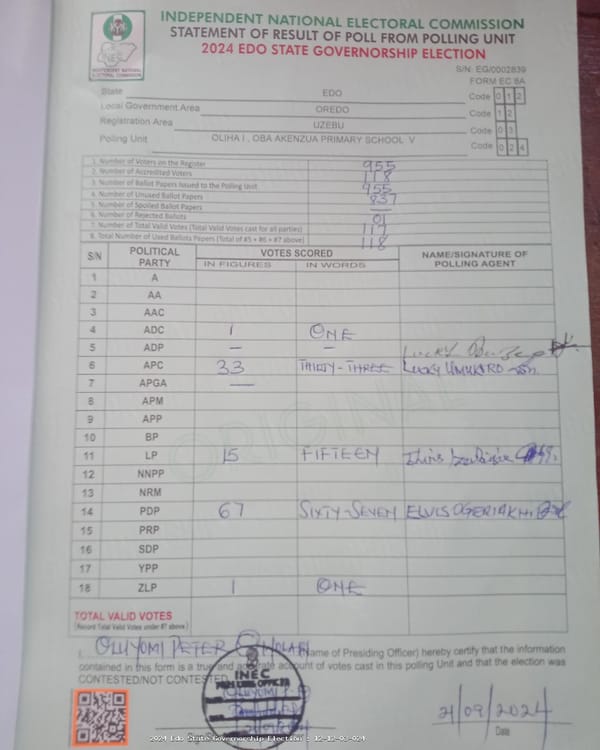 INDEPENDENT NATIONAL ELECTORAL COMMISSION
STATEMENT OF RESULT OF POLL FROM POLLING UNIT
2024 EDO STATE GOVERNORSHIP ELECTION
INEC
INDEPENDENT NATIONAL ELECTORAL COMMISSION
S/N: EG/0002839
FORM EC 8A
State EDO Code 0 1 2
Local Government Area OREDO Code 1 2
Registration Area UZEBU Code 0 3
Polling Unit OLIHA I , OBA AKENZUA PRIMARY SCHOOL V Code 0 2 4
1. Number of Voters on the Register 955
2. Number of Accredited Voters 118
3. Number of Ballot Papers Issued to the Polling Unit 955
4. Number of Unused Ballot Papers 837
5. Number of Spoiled Ballot Papers —
6. Number of Rejected Ballots 01
7. Number of Total Valid Votes (Total Valid Votes cast for all parties) 117
8. Total Number of Used Ballots Papers (Total of #5 + #6 + #7 above) 118
S/N POLITICAL PARTY VOTES SCORED NAME/SIGNATURE OF POLLING AGENT
IN FIGURES IN WORDS
1 A
2 AA
3 AAC
4 ADC 1 ONE
5 ADP — — LUCKY
6 APC 33 THIRTY-THREE LUCKY
7 APGA —
8 APM
9 APP
10 BP
11 LP 15 FIFTEEN
12 NNPP
13 NRM
14 PDP 67 SIXTY-SEVEN ELVIS OGERIAKHI
15 PRP
16 SDP
17 YPP
18 ZLP 1 ONE
TOTAL VALID VOTES
(Record Total Valid Votes under #7 above)
ORIGINAL
I, OLUYOMI PETER (Name of Presiding Officer) hereby certify that the information
contained in this form is a true and accurate account of votes cast in this polling Unit and that the election was
CONTESTED/NOT CONTESTED
INEC
PRESIDING OFFICER
OLUYOMI
21/09/2024
Date
2024 Edo State Governorship Election : 12-12-03-024